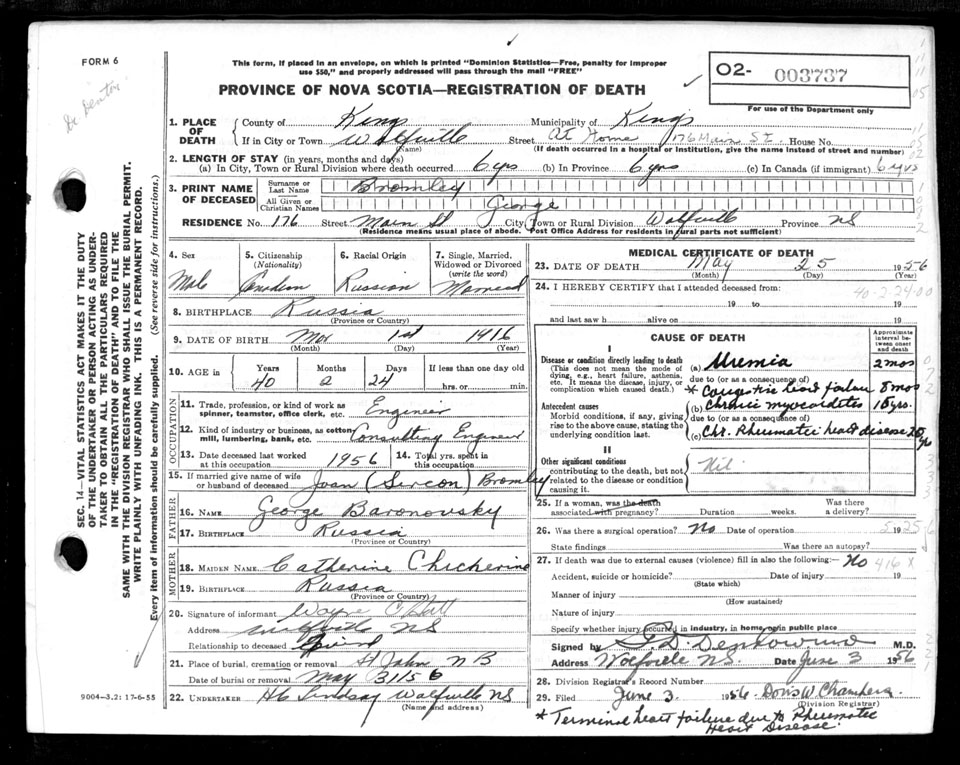 FORM 6
This form, if placed in an envelope, on which is printed "Dominion Statistics—Free, penalty for improper
use $50," and properly addressed will pass through the mail "FREE"
PROVINCE OF NOVA SCOTIA—REGISTRATION OF DEATH
O2- 003737
For use of the Department only
Dr Denton
SEC. 14—VITAL STATISTICS ACT MAKES IT THE DUTY
OF THE UNDERTAKER OR PERSON ACTING AS UNDER-
TAKER TO OBTAIN ALL THE PARTICULARS REQUIRED
IN THE "REGISTRATION OF DEATH" AND TO FILE THE
SAME WITH THE DIVISION REGISTRAR WHO SHALL ISSUE THE BURIAL PERMIT.
WRITE PLAINLY WITH UNFADING INK. THIS IS A PERMANENT RECORD.
Every item of information should be carefully supplied. (See reverse side for instructions.)
1. PLACE OF DEATH
County of Kings Municipality of Kings
If in City or Town Wolfville Street At Home 176 Main St. House No.
(Name) (If death occurred in a hospital or institution, give the name instead of street and number)
2. LENGTH OF STAY (in years, months and days)
(a) In City, Town or Rural Division where death occurred 6 yrs (b) In Province 6 yrs (c) In Canada (if immigrant) 6 yrs
3. PRINT NAME OF DECEASED
Surname or Last Name Bromley
All Given or Christian Names George
RESIDENCE No. 176 Street Main St City, Town or Rural Division Wolfville Province NS
(Residence means usual place of abode. Post Office Address for residents in rural parts not sufficient)
4. Sex
Male
5. Citizenship
(Nationality)
Canadian
6. Racial Origin
Russian
7. Single, Married,
Widowed or Divorced
(write the word)
Married
8. BIRTHPLACE Russia
(Province or Country)
9. DATE OF BIRTH Mar 1st 1916
(Month) (Day) (Year)
10. AGE in
Years Months Days If less than one day
40 2 24 hrs. or min.
OCCUPATION
11. Trade, profession, or kind of work as
spinner, teamster, office clerk, etc. Engineer
12. Kind of industry or business, as cotton
mill, lumbering, bank, etc. Consulting Engineer
13. Date deceased last worked
at this occupation 1956
14. Total yrs. spent in
this occupation
15. If married give name of wife
or husband of deceased Joan (Sercon) Bromley
FATHER
16. Name George Baronovsky
17. Birthplace Russia
(Province or Country)
MOTHER
18. Maiden Name Catherine Chicherine
19. Birthplace Russia
(Province or Country)
20. Signature of informant Wayne
Address Wolfville NS
Relationship to deceased Friend
21. Place of burial, cremation or removal St John NB
Date of burial or removal May 31 1956
22. Undertaker HC Lindsay Wolfville NS
(Name and address)
9004-3.2: 17-6-55
MEDICAL CERTIFICATE OF DEATH
23. DATE OF DEATH May 25 1956
(Month) (Day) (Year)
24. I HEREBY CERTIFY that I attended deceased from:
40-2-24-00
19 to 19
and last saw h alive on 19
CAUSE OF DEATH
Approximate
interval be-
tween onset
and death
I
Disease or condition directly leading to death
(This does not mean the mode of
dying, e.g., heart failure, asthenia,
etc. It means the disease, injury, or
complication which caused death.)
(a) Uremia 2 mos
due to (or as a consequence of)
* Congestive heart failure 8 mos
Antecedent causes
Morbid conditions, if any, giving
rise to the above cause, stating the
underlying condition last.
(b) Chronic myocarditis 15 yrs.
due to (or as a consequence of)
(c) Chr. Rheumatic heart disease 25 yrs
II
Other significant conditions
contributing to the death, but not
related to the disease or condition
causing it.
Nil
25. If a woman, was the death
associated with pregnancy? Duration weeks. Was there a delivery?
26. Was there a surgical operation? No Date of operation 19
State findings Was there an autopsy?
27. If death was due to external causes (violence) fill in also the following:— No 416 X
Accident, suicide or homicide? Date of injury 19
(State which)
Manner of injury
(How sustained)
Nature of injury
Specify whether injury occurred in industry, in home, or in public place
Signed by M.D.
Address Wolfville N.S. Date June 3 1956
28. Division Registrar's Record Number
29. Filed June 3. 1956 Doris W Chambers.
(Division Registrar)
* Terminal heart failure due to Rheumatic
Heart Disease.